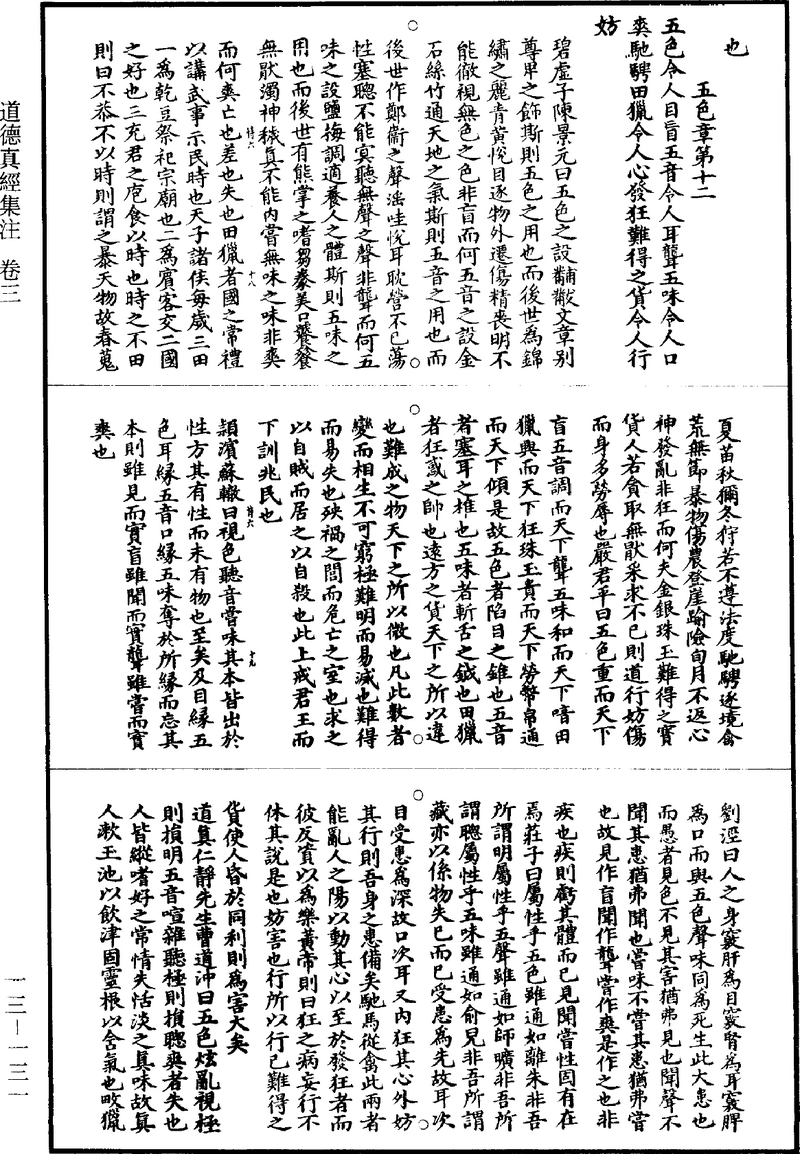 道德真經集注 卷三
一三—一三一
也
五色章第十二
五色令人目盲五音令人耳聾五味令人口
爽馳騁田獵令人心發狂難得之貨令人行
妨
碧虛子陳景元曰五色之設黼黻文章別
尊卑之飾斯則五色之用也而後世為錦
繡之麗青黃悅目逐物外遷傷精喪明不
能徹視無色之色非盲而何五音之設金
石絲竹通天地之氣斯則五音之用也而
後世作鄭衞之聲滛哇悅耳耽營不已蕩
性塞聰不能寞聽無聲之聲非聾而何五
味之設鹽梅調適養人之體斯則五味之
用也而後世有熊掌之嗜芻豢美口饕餮
無猒濁神穢真不能内嘗無味之味非爽
而何爽亡也差也失也田獵者國之常禮
以講武事示民時也天子諸侯每歲三田
一為乾豆祭祀宗廟也二為賓客交二國
之好也三充君之庖食以時也時之不田
則曰不恭不以時則謂之暴天物故春蒐
夏苗秋獮冬狩若不遵法度馳騁逐境禽
荒無節暴物傷農登崖踰險旬月不返心
神發亂非狂而何夫金銀珠玉難得之寶
貨人若貪取無猒采求不已則道行妨傷
而身多勞辱也嚴君平曰五色重而天下
盲五音調而天下聾五味和而天下喑田
獵興而天下狂珠玉貴而天下勞幣帛通
而天下傾是故五色者陷目之錐也五音
者塞耳之椎也五味者斬舌之鉞也田獵
者狂惑之帥也遠方之貨天下之所以違
也難成之物天下之所以微也凡此數者
變而相生不可窮極難明而易滅也難得
而易失也殃禍之閭而危亡之室也求之
以自賊而居之以自殺也此上戒君王而
下訓兆民也
頴濱蘇轍曰視色聽音嘗味其本皆出於
性方其有性而未有物也至矣及目緣五
色耳緣五音口緣五味奪於所緣而忘其
本則雖見而實盲雖聞而實聾雖嘗而實
爽也
劉涇曰人之身竅肝為目竅腎為耳竅脾
為口而與五色聲味同為死生此大患也
而愚者見色不見其害猶弗見也聞聲不
聞其患猶弗聞也嘗味不嘗其患猶弗嘗
也故見作盲聞作聾嘗作爽是作之也非
疾也疾則虧其體而已見聞嘗性固有在
焉莊子曰屬性乎五色雖通如離朱非吾
所謂明屬性乎五聲雖通如師曠非吾所
謂聰屬性乎五味雖通如俞兒非吾所謂
藏亦以係物失已而已受患為先故耳次
目受患為深故口次耳又内狂其心外妨
其行則吾身之患備矣馳馬從禽此兩者
能亂人之陽以動其心以至於發狂者而
彼反實以為樂黃帝則曰狂之病妄行不
休其說是也妨害也行所以行已難得之
貨使人昏於同利則為害大矣
道真仁靜先生曹道沖曰五色炫亂視極
則損明五音喧雜聽極則損聰爽者失也
人皆縱嗜好之常情失恬淡之真味故真
人漱玉池以飲津固靈根以含氣也畋獵